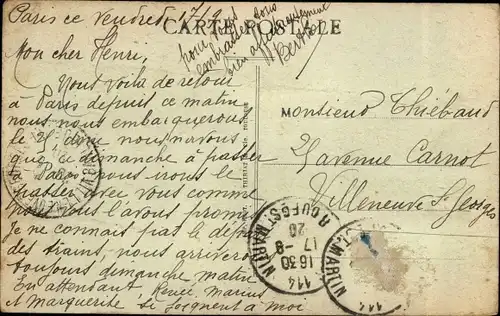 Paris ce Vendredi 17/9
CARTE POSTALE
Mon cher Henri,
Nous voilà de retour
à Paris depuis ce matin
nous nous embarquerons
le 21, donc nous n'avons
que ce dimanche à passer
à Paris, nous irons le
passer avec vous comme
nous vous l'avons promis
Je ne connais pas le départ
des trains, nous arriverons
toujours dimanche matin
En attendant, Renée, Marius
et Marguerite se joignent à moi
pour vous
embrasser tous
bien affectueusement
Berthe
Monsieur Thiébaud
avenue Carnot
Villeneuve St Georges
R. DU FG ST MARTIN
114
16 30
17 - 9
20
ST MARTIN
114